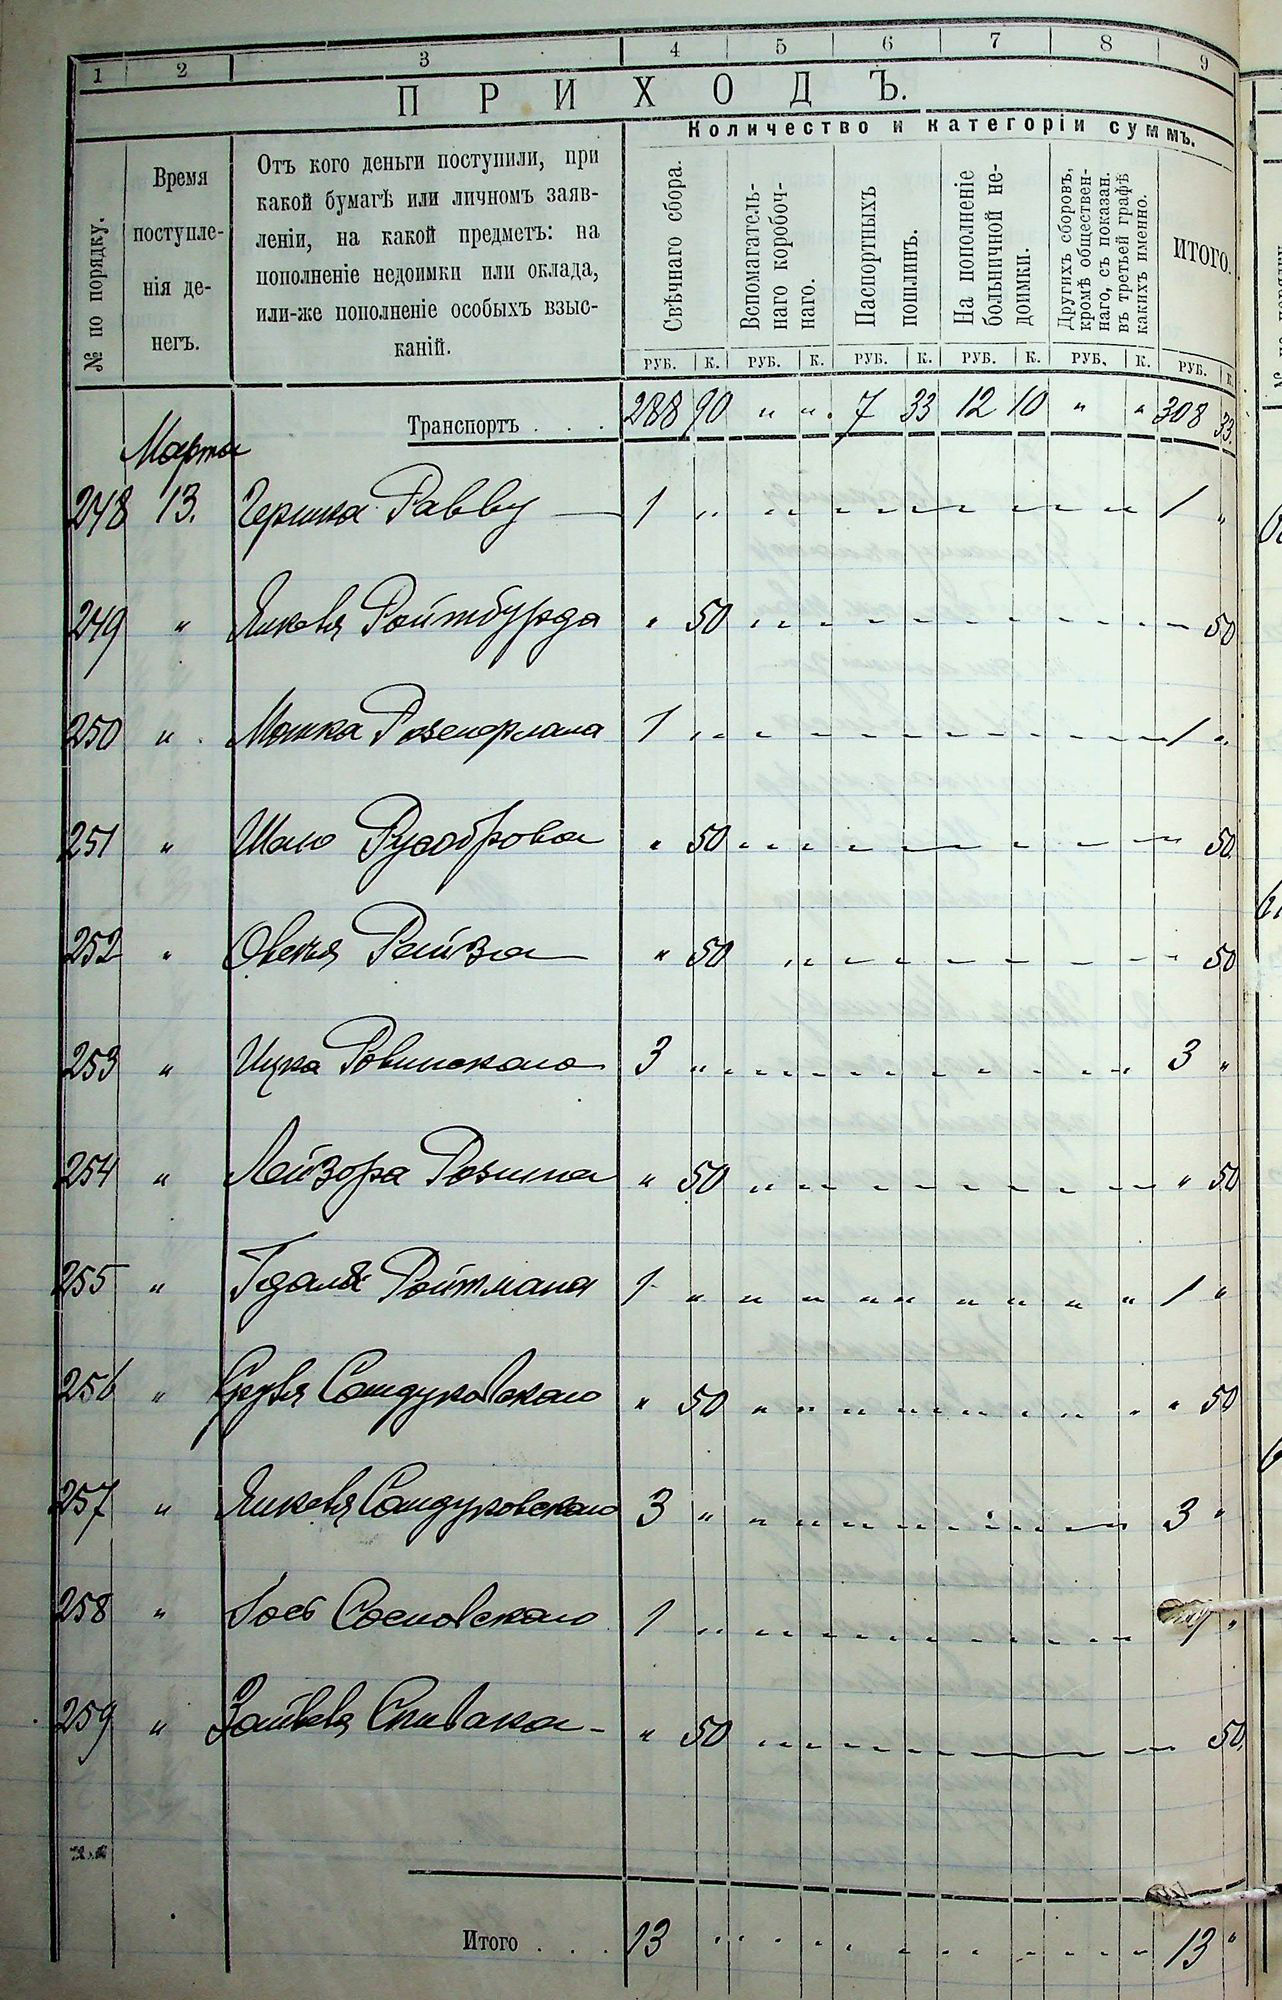 1 2 3 4 5 6 7 8 9
ПРИХОДЪ.
Количество и категоріи суммъ.
№ по порядку.
Время
поступле-
нія де-
негъ.
Отъ кого деньги поступили, при
какой бумагѣ или личномъ заяв-
леніи, на какой предметъ: на
пополненіе недоимки или оклада,
или-же пополненіе особыхъ взыс-
каній.
Свѣчнаго сбора.
Вспомагатель-
наго коробоч-
наго.
Паспортныхъ
поплинъ.
На пополненіе
больничной не-
доимки.
Другихъ сборовъ,
кромѣ обществен-
наго, съ показан.
въ третьей графѣ
какихъ именно.
ИТОГО.
РУБ. К. РУБ. К. РУБ. К. РУБ. К. РУБ. К. РУБ. К.
Транспортъ . . . 288 90 " " . 7 33 12 10 " " 308 33.
Марта
248 13. Гершка Равву — 1 " 1 "
249 " Янкеля Ройтбурда " 50 50
250 " Мошка Розенфельда 1 " 1 "
251 " " 50 50.
252 " Рейза " 50 50
253 " Ицка Ровинскаго 3 " 3 "
254 " Лейзора Розина " 50 " 50
255 " Гдаля Ройтмана 1 " 1 "
256 " Сандуковскаго " 50 " 50
257 " Янкеля Сандуковскаго 3 " 3 "
258 " Іося Сосновскаго 1 " 1 "
259 " Зайвеля Спивака - " 50 50.
Итого . . . 13 " 13 "